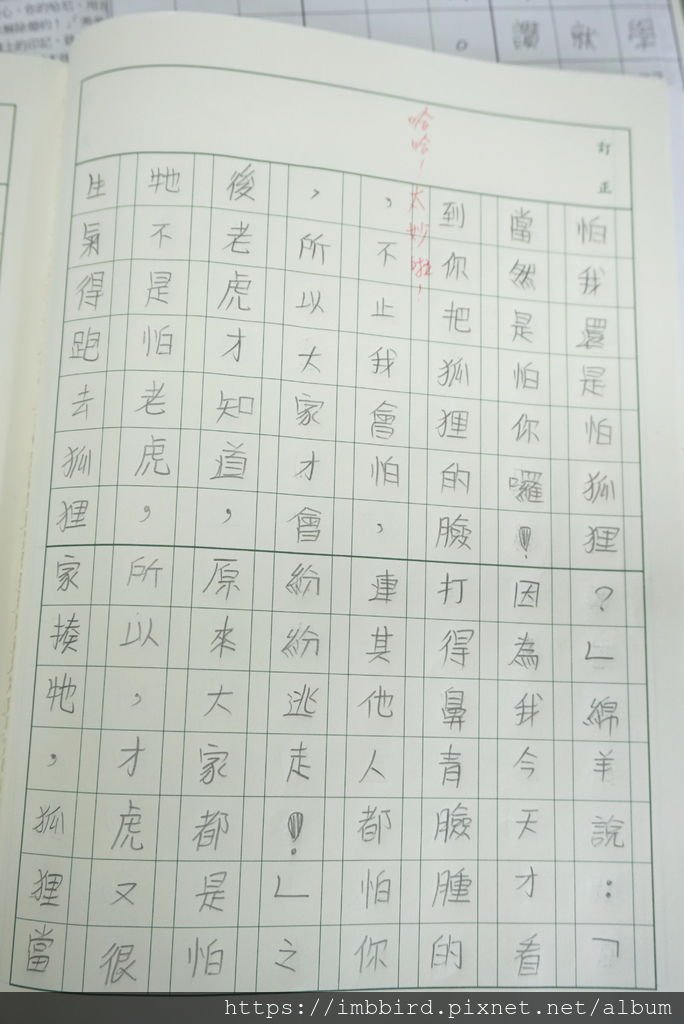 訂正
哈哈！太妙啦！
怕我還是怕狐狸？」綿羊說：「
當然是怕你囉！因為我今天才看
到你把狐狸的臉打得鼻青臉腫的
，不止我會怕，連其他人都怕你
，所以大家才會紛紛逃走！」之
後老虎才知道，原來大家都是怕
牠不是怕老虎，所以，才虎又很
生氣得跑去狐狸家揍牠，狐狸當
學
就
讚
。
https://imbbird.pixnet.net/album